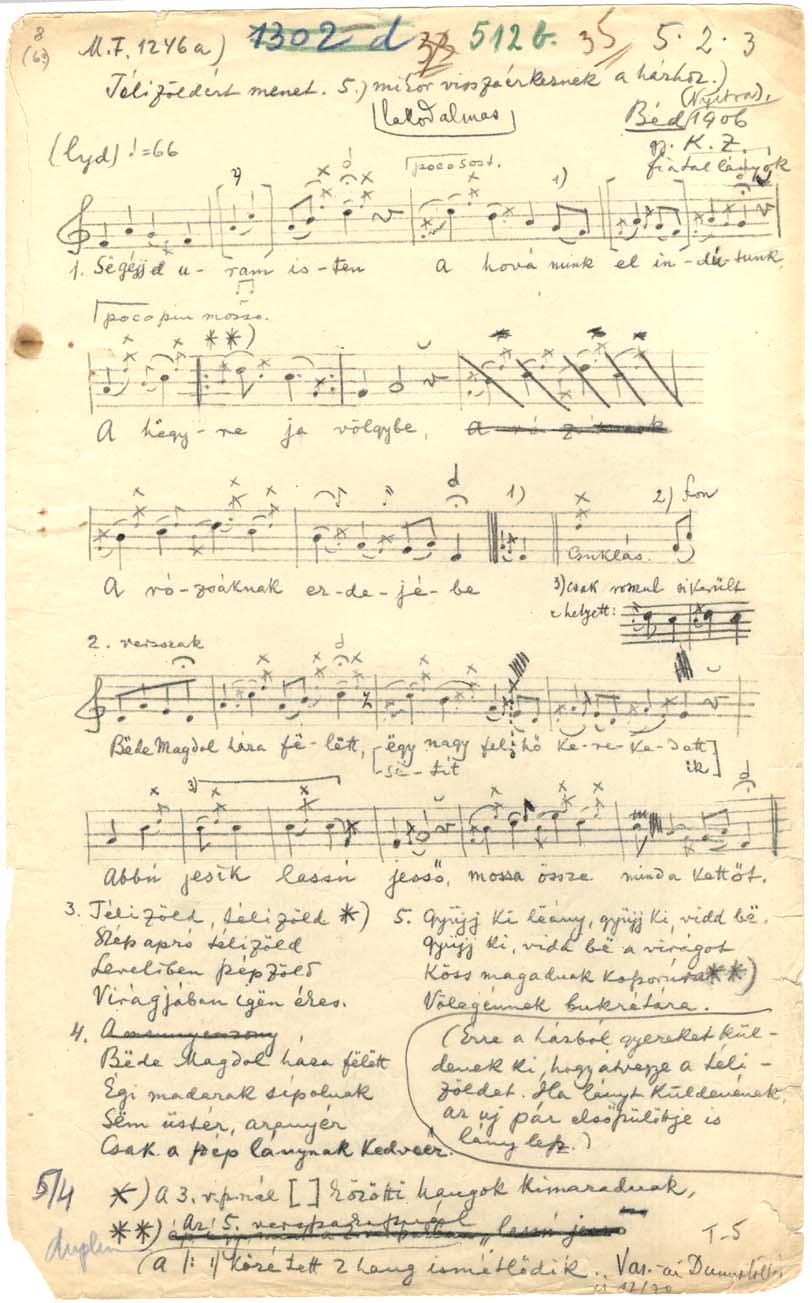 8
(6)
M.F. 1246a) 1302 d 33 512b. 35 5.2.3
Télizöldért menet. 5.) mikor visszaérkeznek a házhoz.)
lakodalmas
(Nyitra),
Béd 1906
gy. K. Z.
fiatal lányok
(lyd) ♩=66
2) poco sost. 1)
1. Segéjjd u-ram is-ten A hová mink el in-dú-tunk,
poco piu mosso.
**)
A hëgy-re ja völgybe, A ró zsáknak
1) 2) fon
Csuklás.
A ró-zsáknak er-de-jé-be
3) csak rosszul sikerült
e helyett:
2. versszak
Bëde Magdol háza fë-lëtt, [ëgy nagy felhő ke-re-ke-dätt
së-tít ik]
3)
Abbú jesik lassú jesső, mossa össze mind a kettőt.
3. Télizöld, télizöld *)
Szép apró télizöld
Leveliben szépzöld
Virágjában igën éres.
4. Aranyasszony
Bëde Magdol háza fëlëtt
Égi madarak sípolnak
Sëm üstér, aranyér
Csak a szép lánynak kedveér.
5. Gyüjj ki lëány, gyüjj ki, vidd bë.
Gyüjj ki, vidd bë a virágot
Köss magadnak koporúra **)
Völegénnek bukrétára.
(Erre a házból gyereket kül-
denek ki, hogy átvegye a téli-
zöldet. Ha lányt küldenének,
az új pár elsőszülöttje is
lány lesz.)
5/4
duplum
*) A 3. vsz.nál [ ] közötti hangok kimaradnak,
**) Az 5. versszaknál
"lassú jesső
(A |: :| közé tett 2 hang ismétlődik. T-5